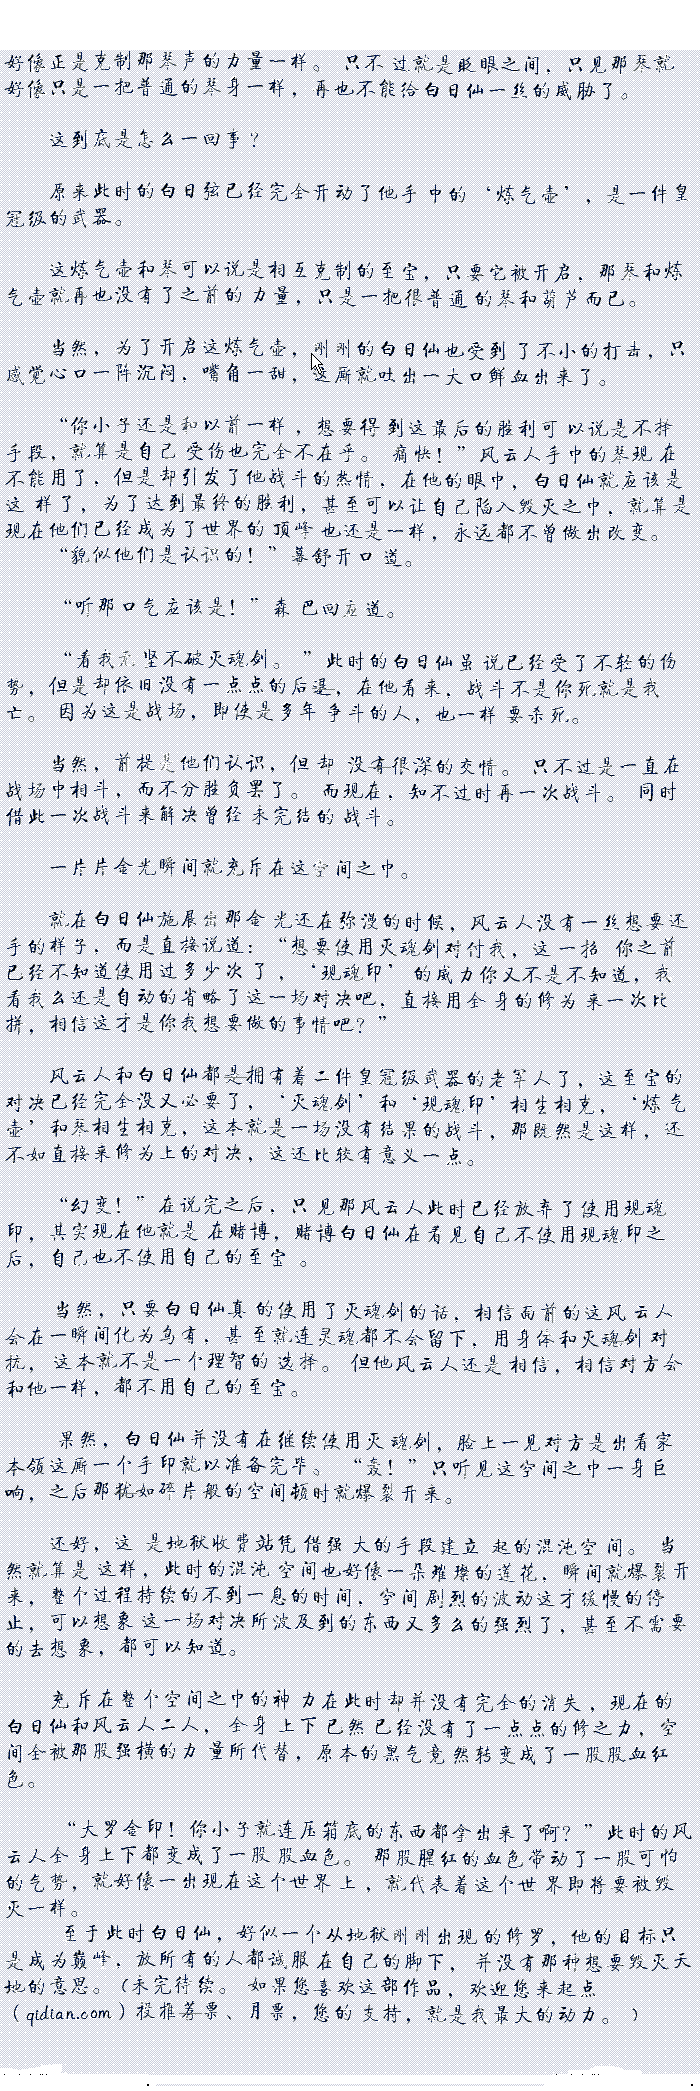 好像正是克制那琴声的力量一样。 只不过就是眨眼之间，只见那琴就
好像只是一把普通的琴身一样，再也不能给白日仙一丝的威胁了。
这到底是怎么一回事？
原来此时的白日弦已经完全开动了他手中的‘炼气壶’，是一件皇
冠级的武器。
这炼气壶和琴可以说是相互克制的至宝，只要它被开启，那琴和炼
气壶就再也没有了之前的力量，只是一把很普通的琴和葫芦而已。
当然，为了开启这炼气壶，刚刚的白日仙也受到了不小的打击，只
感觉心口一阵沉闷，嘴角一甜，这厮就吐出一大口鲜血出来了。
“你小子还是和以前一样，想要得到这最后的胜利可以说是不择
手段，就算是自己受伤也完全不在乎。 痛快！”风云人手中的琴现在
不能用了，但是却引发了他战斗的热情，在他的眼中，白日仙就应该是
这样了，为了达到最终的胜利，甚至可以让自己陷入毁灭之中，就算是
现在他们已经成为了世界的顶峰也还是一样，永远都不曾做出改变。
“貌似他们是认识的！”慕舒开口道。
“听那口气应该是！”森巴回应道。
“看我无坚不破灭魂剑。 ”此时的白日仙虽说已经受了不轻的伤
势，但是却依旧没有一点点的后退，在他看来，战斗不是你死就是我
亡。 因为这是战场，即使是多年争斗的人，也一样要杀死。
当然，前提是他们认识，但却 没有很深的交情。 只不过是一直在
战场中相斗，而不分胜负罢了。 而现在，知不过时再一次战斗。 同时
借此一次战斗来解决曾经未完结的战斗。
一片片金光瞬间就充斥在这空间之中。
就在白日仙施展出那金光还在弥漫的时候，风云人没有一丝想要还
手的样子，而是直接说道：“想要使用灭魂剑对付我，这一招 你之前
已经不知道使用过多少次了，‘现魂印’的威力你又不是不知道，我
看我么还是自动的省略了这一场对决吧，直接用全身的修为来一次比
拼，相信这才是你我想要做的事情吧？”
风云人和白日仙都是拥有着二件皇冠级武器的老军人了，这至宝的
对决已经完全没又必要了，‘灭魂剑’和‘现魂印’相生相克，‘炼气
壶’和琴相生相克，这本就是一场没有结果的战斗，那既然是这样，还
不如直接来修为上的对决，这还比较有意义一点。
“幻变！”在说完之后，只见那风云人此时已经放弃了使用现魂
印，其实现在他就是在赌博，赌博白日仙在看见自己不使用现魂印之
后，自己也不使用自己的至宝 。
当然，只要白日仙真的使用了灭魂剑的话，相信面前的这风云人
会在一瞬间化为乌有，甚至就连灵魂都不会留下，用身体和灭魂剑对
抗，这本就不是一个理智的选择。 但他风云人还是相信，相信对方会
和他一样，都不用自己的至宝。
果然，白日仙并没有在继续使用灭魂剑，脸上一见对方是出看家
本领这厮一个手印就以准备完毕。 “轰！”只听见这空间之中一身巨
响，之后那犹如碎片般的空间顿时就爆裂开来。
还好，这 是地狱收费站凭借强大的手段建立 起的混沌空间。 当
然就算是这样，此时的混沌空间也好像一朵璀璨的莲花，瞬间就爆裂开
来，整个过程持续的不到一息的时间，空间剧烈的波动这才缓慢的停
止，可以想象这一场对决所波及到的东西又多么的强烈了，甚至不需要
的去想象，都可以知道。
充斥在整个空间之中的神力在此时却并没有完全的消失，现在的
白日仙和风云人二人，全身上下已然已经没有了一点点的修之力，空
间全被那股强横的力量所代替，原本的黑气竟然转变成了一股股血红
色。
“大罗金印！你小子就连压箱底的东西都拿出来了啊？”此时的风
云人全身上下都变成了一股股血色。 那股腥红的血色带动了一股可怕
的气势，就好像一出现在这个世界上，就代表着这个世界即将要被毁
灭一样。
至于此时白日仙，好似一个从地狱刚刚出现的修罗，他的目标只
是成为巅峰，放所有的人都诚服在自己的脚下，并没有那种想要毁灭天
地的意思。（未完待续。 如果您喜欢这部作品，欢迎您来起点
（qidian.com）投推荐票、月票，您的支持，就是我最大的动力。）